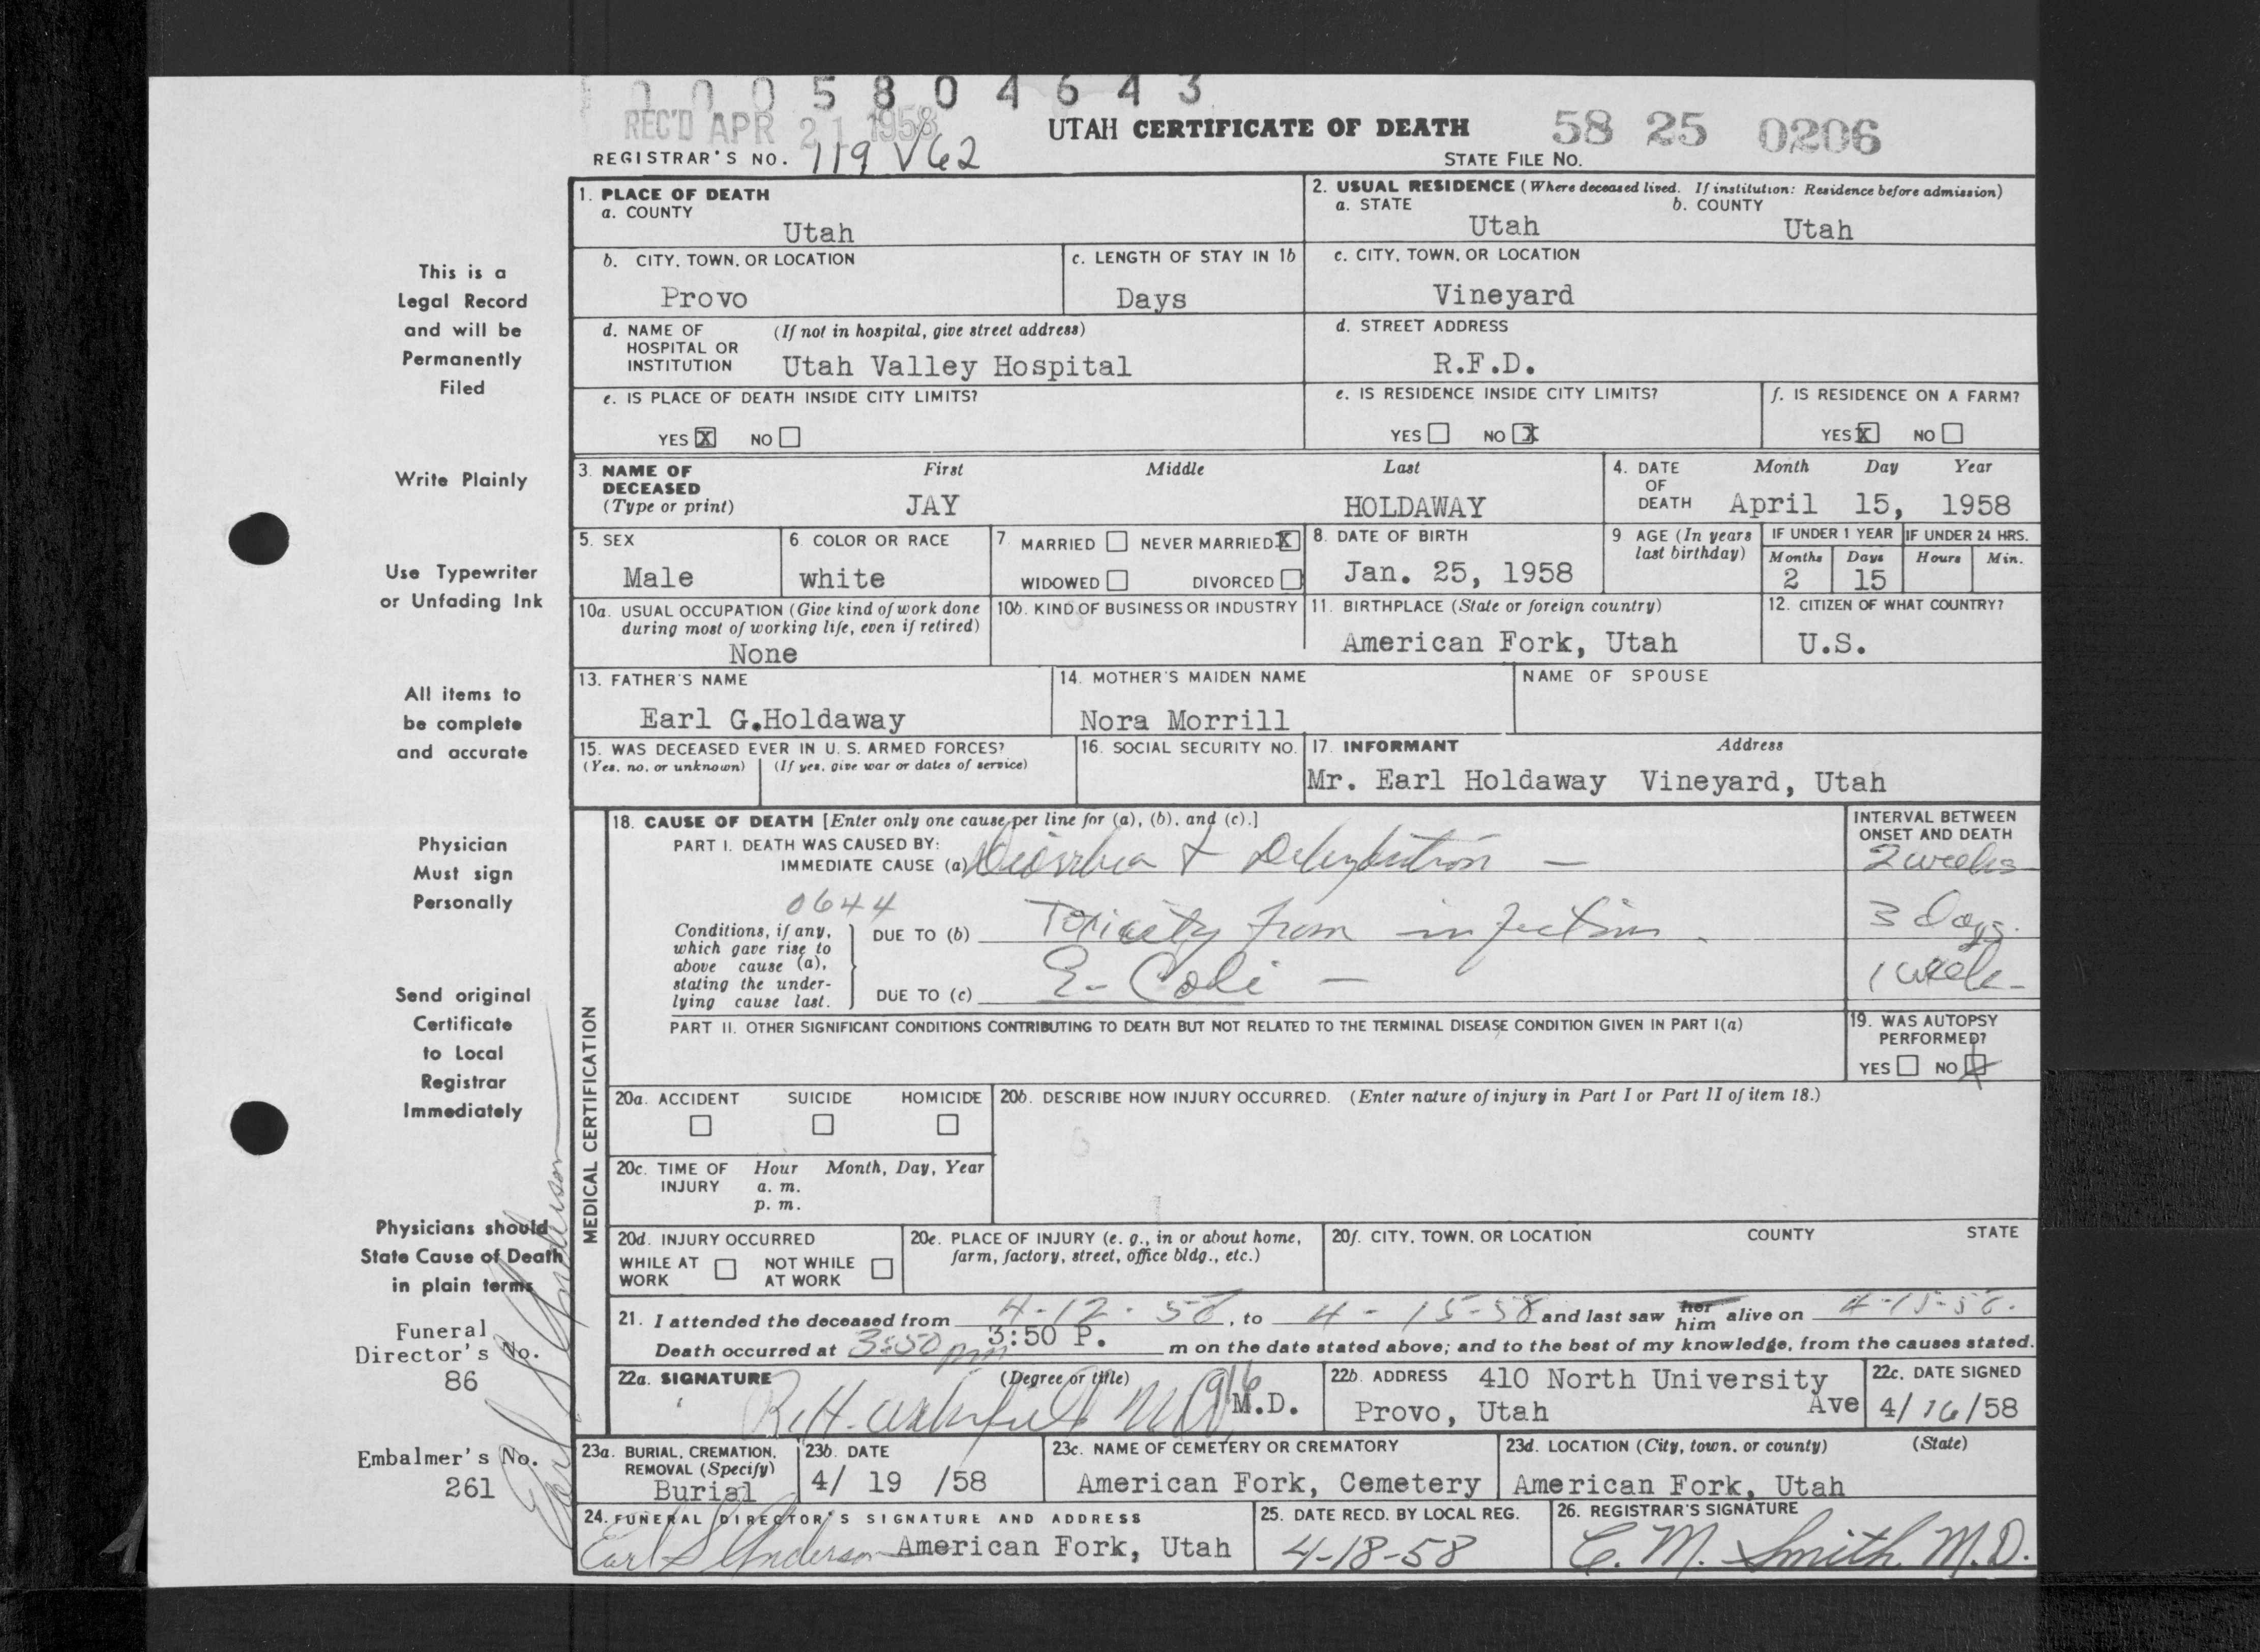 0 0 0 5 8 0 4 6 4 3
REC'D APR 21 1958
UTAH CERTIFICATE OF DEATH
58 25 0206
REGISTRAR'S NO. 119 V62
STATE FILE No.
This is a
Legal Record
and will be
Permanently
Filed
Write Plainly
Use Typewriter
or Unfading Ink
All items to
be complete
and accurate
Physician
Must sign
Personally
Send original
Certificate
to Local
Registrar
Immediately
Physicians should
State Cause of Death
in plain terms
Funeral
Director's No.
86
Embalmer's No.
261
Earl S Anderson
1. PLACE OF DEATH
a. COUNTY
Utah
2. USUAL RESIDENCE (Where deceased lived. If institution: Residence before admission)
a. STATE b. COUNTY
Utah Utah
b. CITY, TOWN, OR LOCATION
Provo
c. LENGTH OF STAY IN 1b
Days
c. CITY, TOWN, OR LOCATION
Vineyard
d. NAME OF (If not in hospital, give street address)
HOSPITAL OR
INSTITUTION Utah Valley Hospital
d. STREET ADDRESS
R.F.D.
e. IS PLACE OF DEATH INSIDE CITY LIMITS?
YES X NO
e. IS RESIDENCE INSIDE CITY LIMITS?
YES NO X
f. IS RESIDENCE ON A FARM?
YES X NO
3. NAME OF First Middle Last
DECEASED
(Type or print) JAY HOLDAWAY
4. DATE Month Day Year
OF
DEATH April 15, 1958
5. SEX
Male
6. COLOR OR RACE
white
7. MARRIED NEVER MARRIED X
WIDOWED DIVORCED
8. DATE OF BIRTH
Jan. 25, 1958
9 AGE (In years
last birthday)
IF UNDER 1 YEAR IF UNDER 24 HRS.
Months Days Hours Min.
2 15
10a. USUAL OCCUPATION (Give kind of work done
during most of working life, even if retired)
None
10b. KIND OF BUSINESS OR INDUSTRY
11. BIRTHPLACE (State or foreign country)
American Fork, Utah
12. CITIZEN OF WHAT COUNTRY?
U.S.
13. FATHER'S NAME
Earl G.Holdaway
14. MOTHER'S MAIDEN NAME
Nora Morrill
NAME OF SPOUSE
15. WAS DECEASED EVER IN U. S. ARMED FORCES?
(Yes, no, or unknown) (If yes, give war or dates of service)
16. SOCIAL SECURITY NO.
17. INFORMANT Address
Mr. Earl Holdaway Vineyard, Utah
MEDICAL CERTIFICATION
18. CAUSE OF DEATH [Enter only one cause per line for (a), (b), and (c).]
INTERVAL BETWEEN
ONSET AND DEATH
PART I. DEATH WAS CAUSED BY:
IMMEDIATE CAUSE (a) Diorrhea & Dehydration — 2 weeks
0644
Conditions, if any,
which gave rise to
above cause (a),
stating the under-
lying cause last.
DUE TO (b) Toxicity from infection. 3 days.
DUE TO (c) E-Coli — 1 week-
PART II. OTHER SIGNIFICANT CONDITIONS CONTRIBUTING TO DEATH BUT NOT RELATED TO THE TERMINAL DISEASE CONDITION GIVEN IN PART I(a)
19. WAS AUTOPSY
PERFORMED?
YES NO X
20a. ACCIDENT SUICIDE HOMICIDE
20b. DESCRIBE HOW INJURY OCCURRED. (Enter nature of injury in Part I or Part II of item 18.)
20c. TIME OF Hour Month, Day, Year
INJURY a. m.
p. m.
20d. INJURY OCCURRED
WHILE AT NOT WHILE
WORK AT WORK
20e. PLACE OF INJURY (e. g., in or about home,
farm, factory, street, office bldg., etc.)
20f. CITY, TOWN, OR LOCATION COUNTY STATE
21. I attended the deceased from 4-12-58, to 4-15-58 and last saw her him alive on 4-15-58.
Death occurred at 3:50 pm 3:50 P. m on the date stated above; and to the best of my knowledge, from the causes stated.
22a. SIGNATURE (Degree or title)
R.H. M.D. M.D.
22b. ADDRESS 410 North University
Provo, Utah Ave
22c. DATE SIGNED
4/16/58
23a. BURIAL, CREMATION,
REMOVAL (Specify)
Burial
23b. DATE
4/ 19 /58
23c. NAME OF CEMETERY OR CREMATORY
American Fork, Cemetery
23d. LOCATION (City, town, or county) (State)
American Fork, Utah
24. FUNERAL DIRECTOR'S SIGNATURE AND ADDRESS
Earl S Anderson American Fork, Utah
25. DATE RECD. BY LOCAL REG.
4-18-58
26. REGISTRAR'S SIGNATURE
C. M. Smith, M.D.